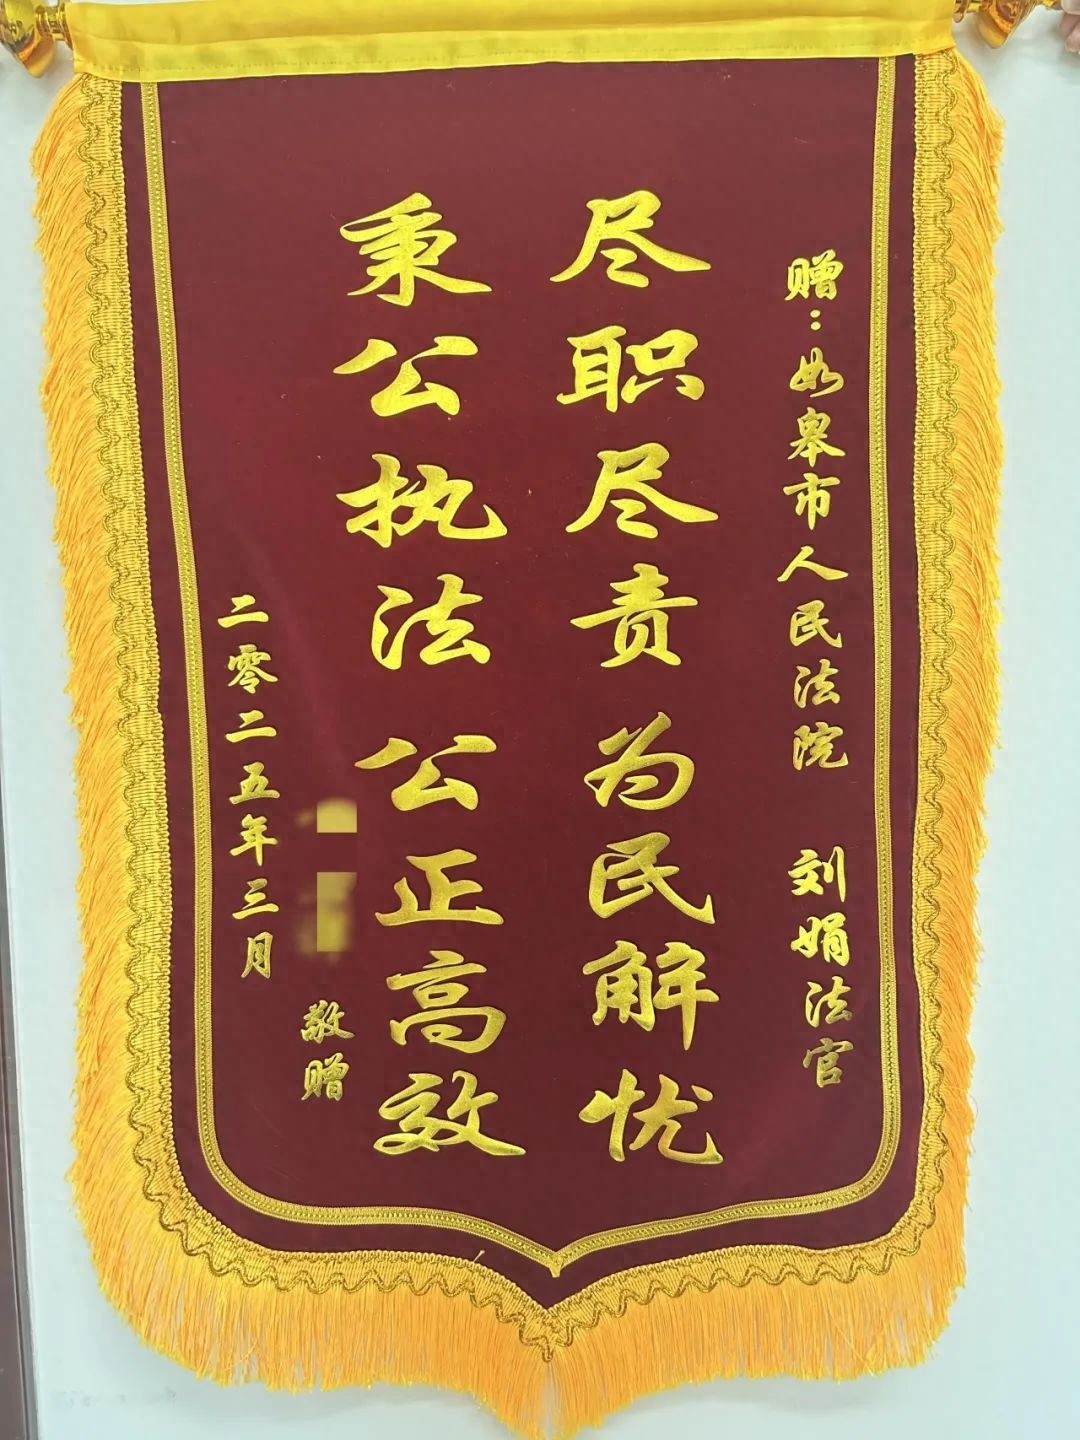 赠：如皋市人民法院 刘娟法官
尽职尽责为民解忧
秉公执法公正高效
敬赠
二零二五年三月